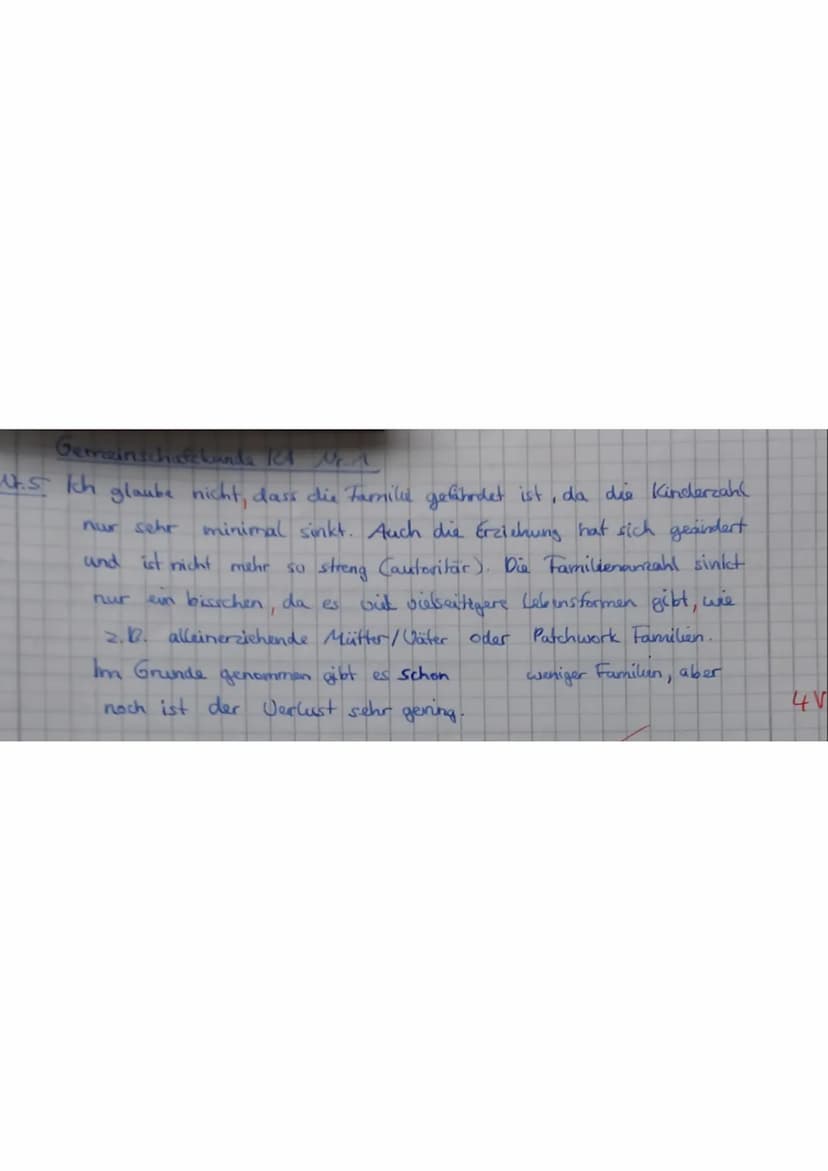 Gemeinschaftskunde KA Nr. 1
Nr.5 Ich glaube nicht, dass die Familie gefährdet ist, da die Kinderzahl
nur sehr minimal sinkt. Auch die Erziehung hat sich geändert
und ist nicht mehr so streng (autoritär). Die Familienanzahl sinkt
nur ein bisschen, da es vielseitigere Lebensformen gibt, wie
z.B. alleinerziehende Mütter/Väter oder Patchwork Familien.
Im Grunde genommen gibt es schon weniger Familien, aber
noch ist der Verlust sehr gering.
4V